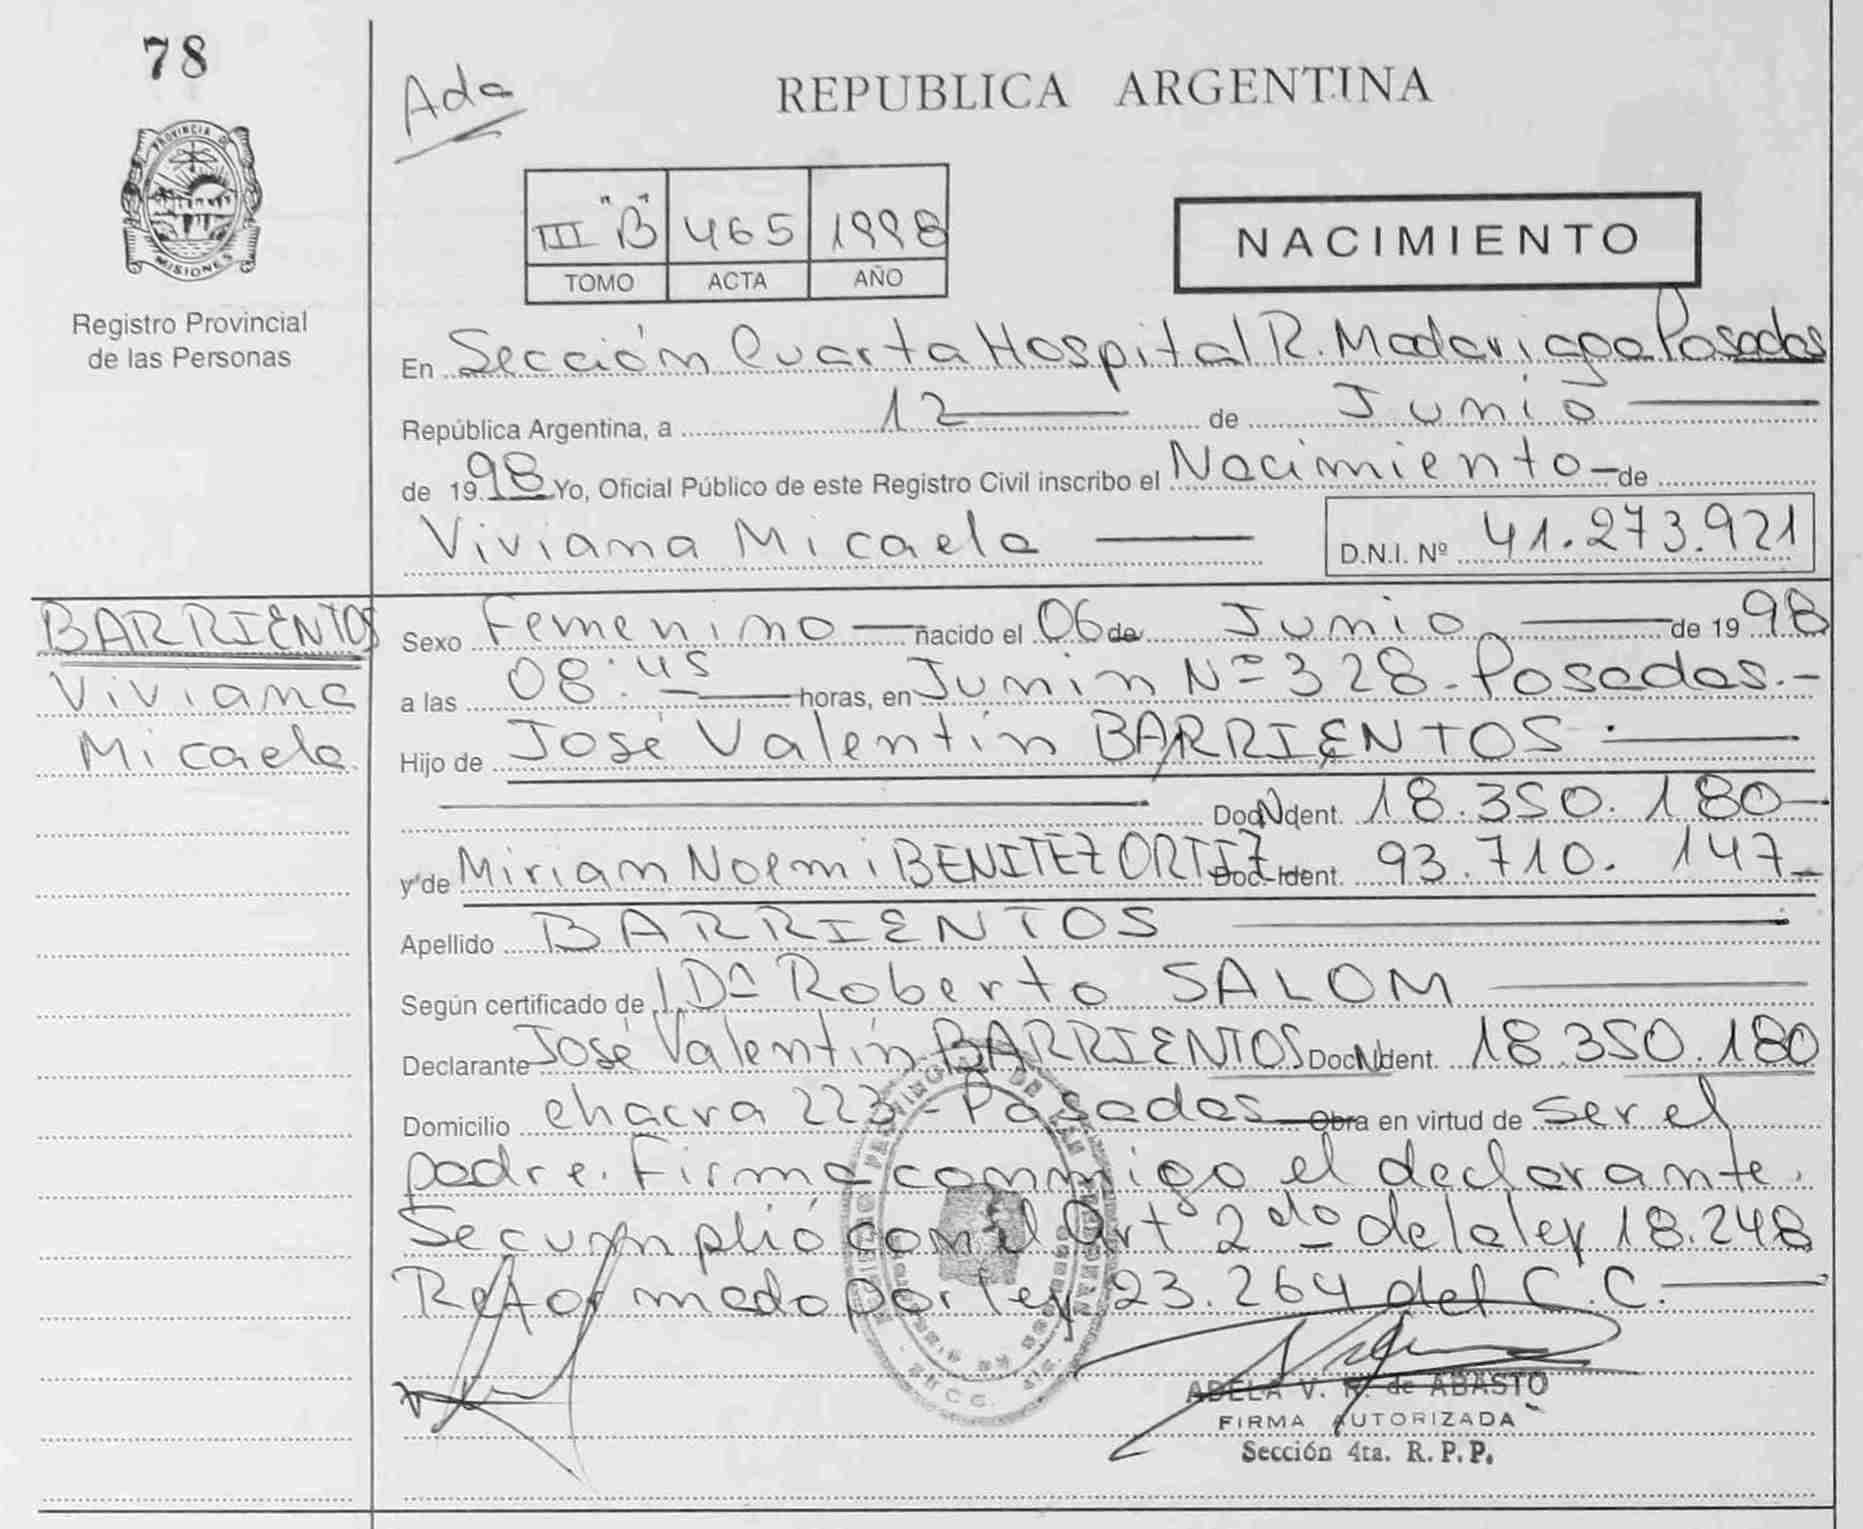 78
Ada
REPUBLICA ARGENTINA
PROVINCIA DE MISIONES
Registro Provincial
de las Personas
III "B" 465 1998
TOMO ACTA AÑO
NACIMIENTO
En Sección Cuarta Hospital R. Madariaga Posadas
República Argentina, a 12 de Junio
de 1998 Yo, Oficial Público de este Registro Civil inscribo el Nacimiento de
Viviana Micaela D.N.I. Nº 41.273.921
BARRIENTOS
Viviana
Micaela
Sexo Femenino nacido el 06 de Junio de 1998
a las 08:45 horas, en Junin Nº 328 - Posadas.-
Hijo de José Valentín BARRIENTOS
Doc. Ident. 18.350.180
y de Mirian Noemi BENITEZ ORTIZ Doc. Ident. 93.710.147
Apellido BARRIENTOS
Según certificado de Dr Roberto SALOM
Declarante José Valentín BARRIENTOS Doc. Ident. 18.350.180
Domicilio chacra 223 - Posadas Obra en virtud de ser el
padre. Firma conmigo el declarante.
Se cumplió con el Artº 2do de la ley 18.248
Reformado por ley 23.264 del C.C.
ADELA V. de ABASTO
FIRMA AUTORIZADA
Sección 4ta. R. P. P.